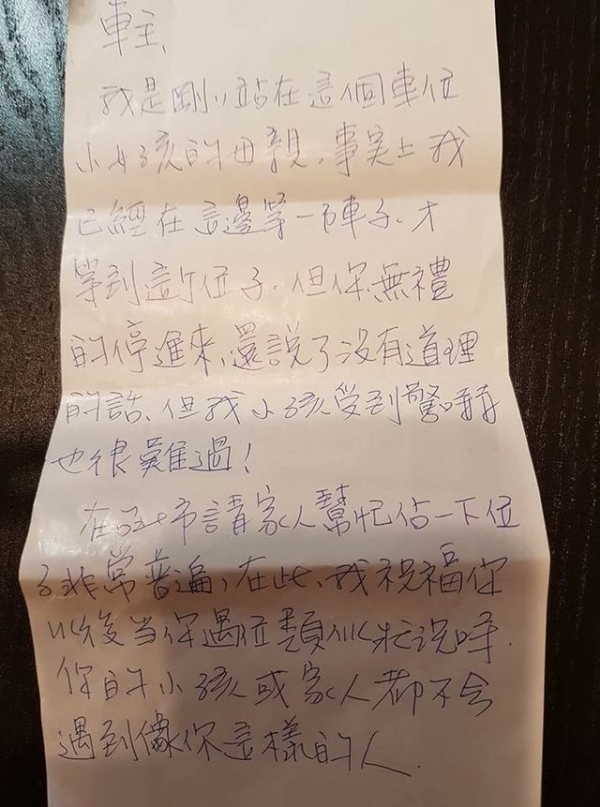 車主、
我是剛剛站在這個車位
小女孩的母親，事実上我
已經在這邊等一陣子、才
等到這个位子．但你無禮
的停進來，還說了没有道理
的話、但我小孩受到驚嚇
也很難過！
在 市請家人幫忙佔一下位
子非常普遍，在此、我祝福你
以後当你遇位類似狀況時．
你的小孩或家人都不会
遇到像你這樣的人．